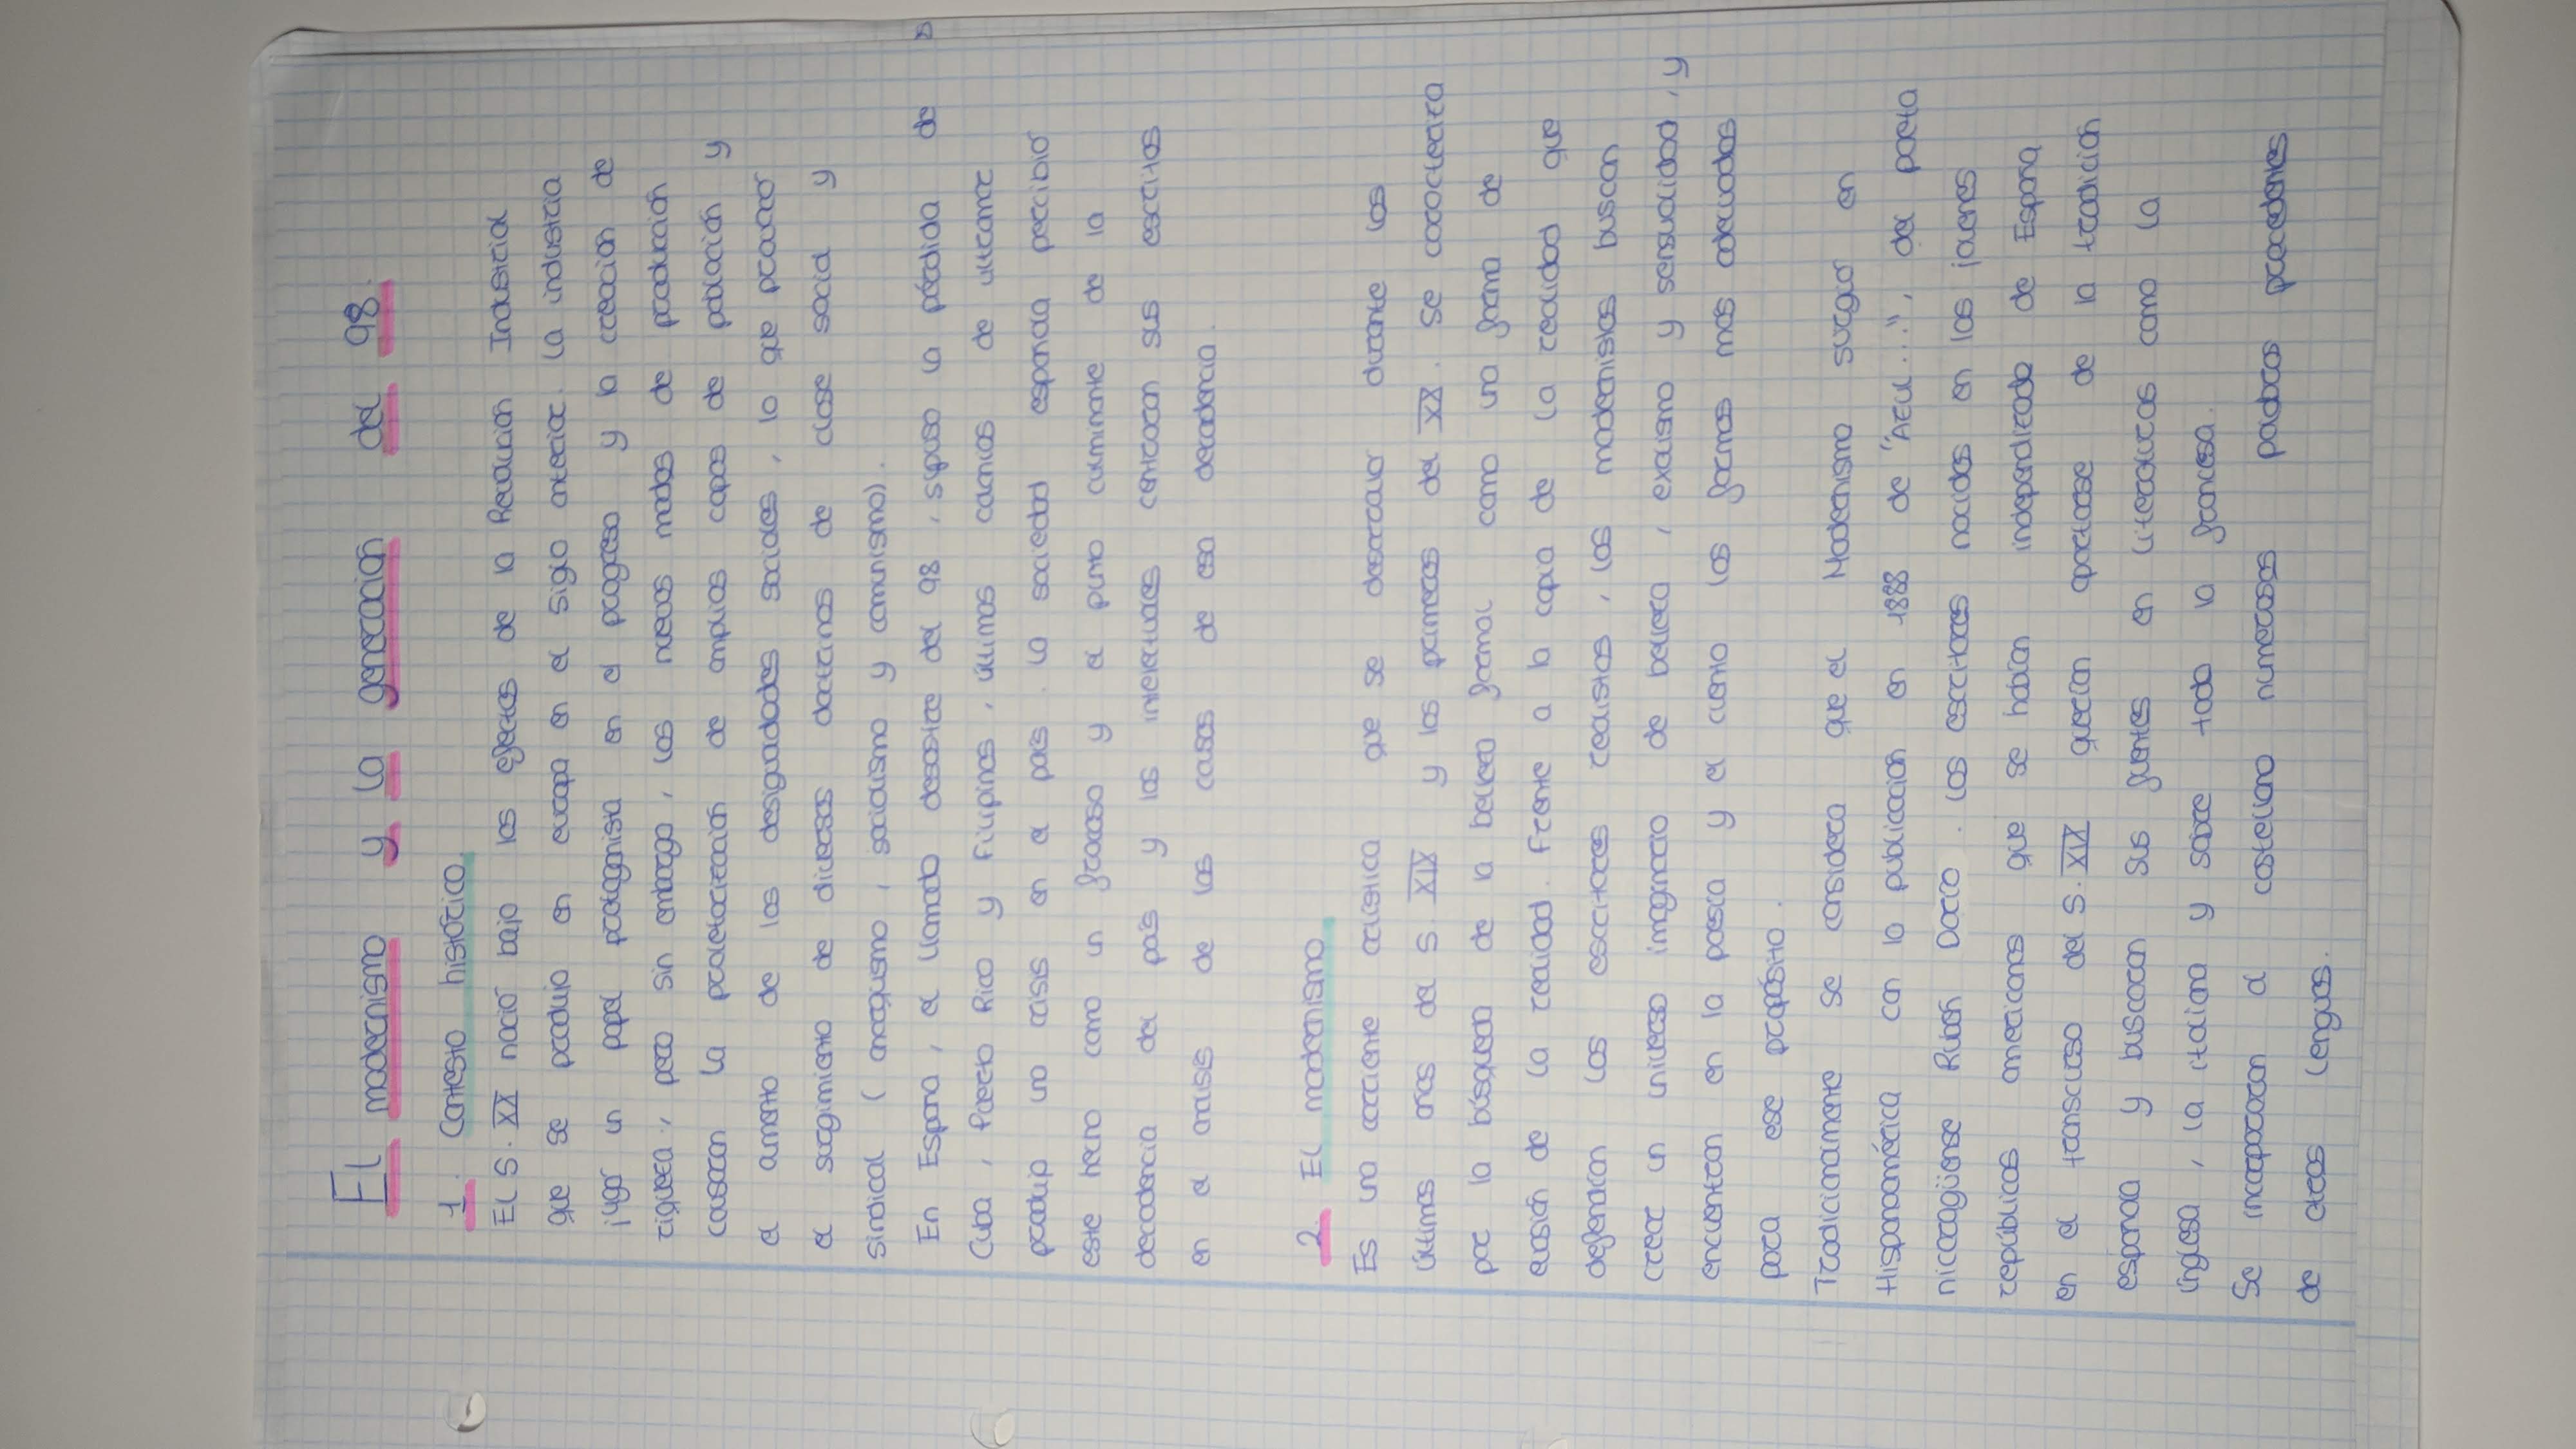 El modernismo y la generación del 98.
1. Contesto histórico.
El S. XX nació bajo los efectos de la Revolución Industrial
que se produjo en europa en el siglo anterior. La industria
jugó un papel protagonista en el progreso y la creación de
riqueza, pero sin embargo, los nuevos modos de producción
causaron la proletarización de amplias capas de población y
el amento de las desigualdades sociales, lo que provocó
el surgimiento de diversas doctrinas de clase social y
sindical (anarquismo, socialismo y comunismo).
En España, el llamado desastre del 98, supuso la pérdida de
Cuba, Puerto Rico y Filipinas, últimas colonias de ultramar
produjo una crisis en el país. La sociedad española percibió
este hecho como un fracaso y el punto culminante de la
decadencia del país y los intelectuales centraron sus escritos
en el análisis de las casas de esa decadencia.
2. El modernismo
Es una corriente artística que se desarrolló durante los
últimos años del S. XIX y los primeros del XX. Se caracteriza
por la búsqueda de la belleza formal como una forma de
evasión de la realidad. Frente a la copia de la realidad que
defendían los escritores realistas, los modernistas buscan
crear un universo imaginario de belleza, exotismo y sensualidad, y
encuentran en la poesía y el cuento las formas más adecuadas
para ese propósito.
Tradicionalmente se considera que el Modernismo surgió en
Hispanoamérica con la publicación en 1888 de "AZUL...", del poeta
nicaragüense Rubén Darío. Los escritores nacidos en las jóvenes
repúblicas americanas que se habían independizado de España
en el transcurso del S. XIX querían apartarse de la tradición
española y buscaron sus fuentes en literaturas como la
inglesa, la italiana y sobre todo la francesa.
Se incorporaron al castellano numerosas palabras precedentes
de otras lenguas.